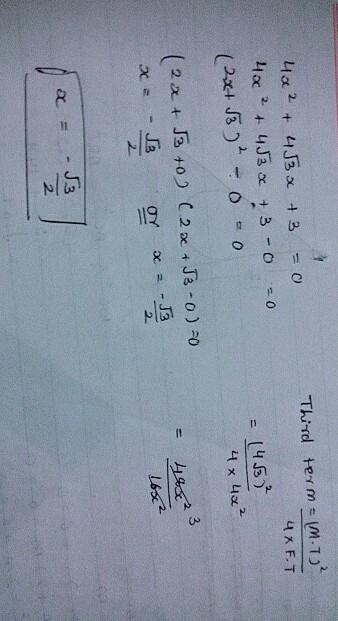 4x² + 4√3x + 3 = 0
4x² + 4√3x + 3 - 0 = 0
(2x+√3)² - 0 = 0
(2x + √3 + 0) (2x + √3 - 0) = 0
x = -√3/2 or x = -√3/2
x = -√3/2
Third term = (M.T)²/4 x F.T
= (4√3)²/4 x 4x²
= 48x² 3/16x²